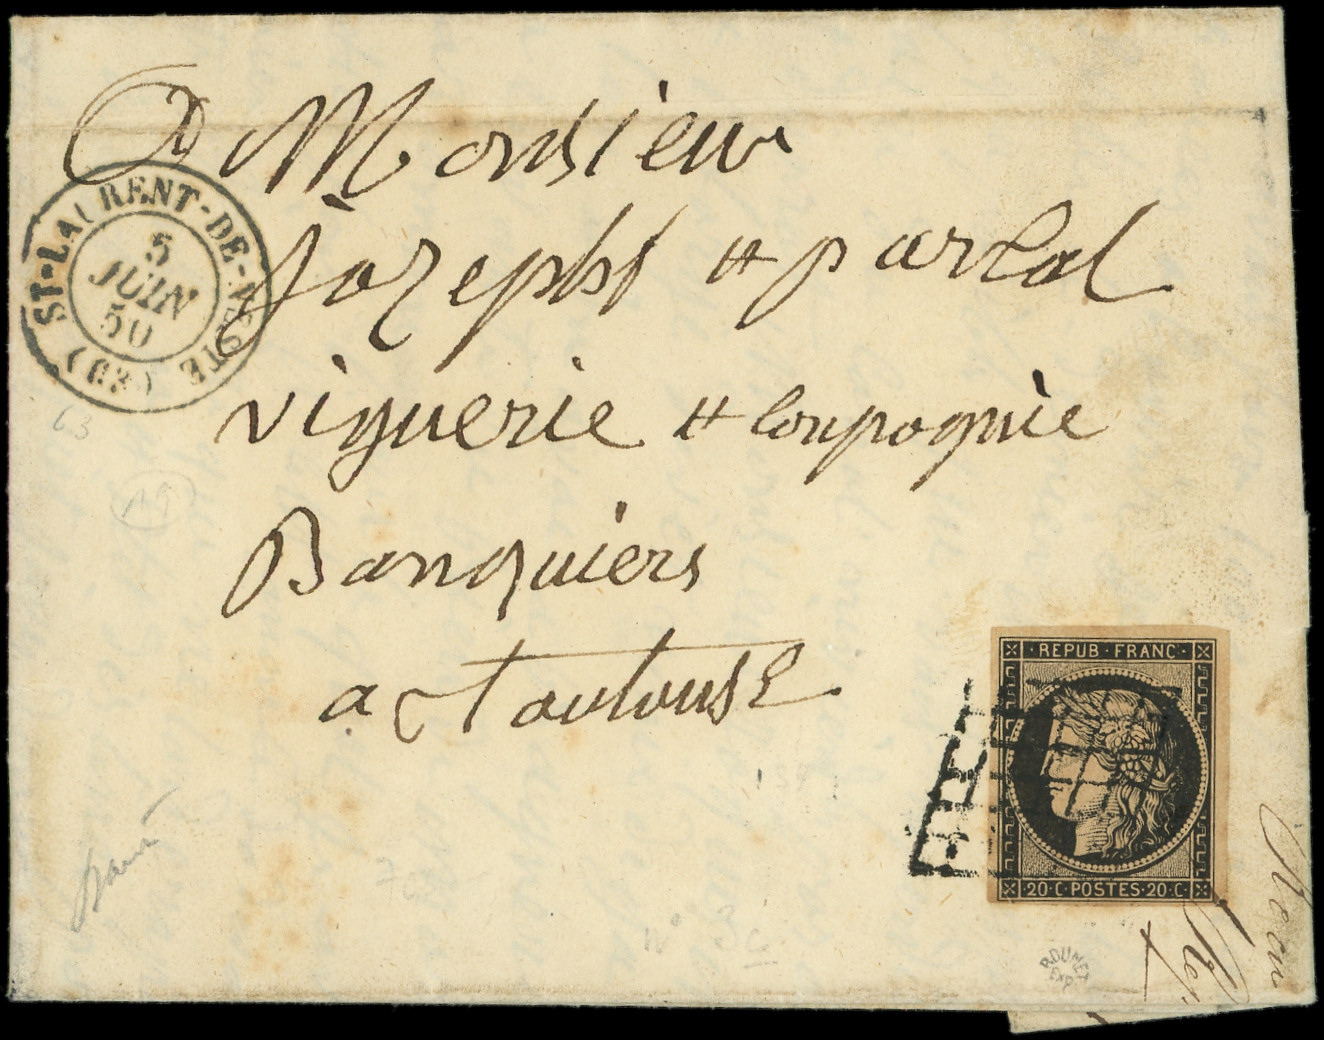 A Monsieur
Jozephs et partal
viguerie et Conpagnie
Banquiers
a Toulouse
ST-LAURENT-DE-NESTE (63)
5
JUIN
50
63
REPUB·FRANC·
20·C·POSTES·20·C
ROUMET
EXP